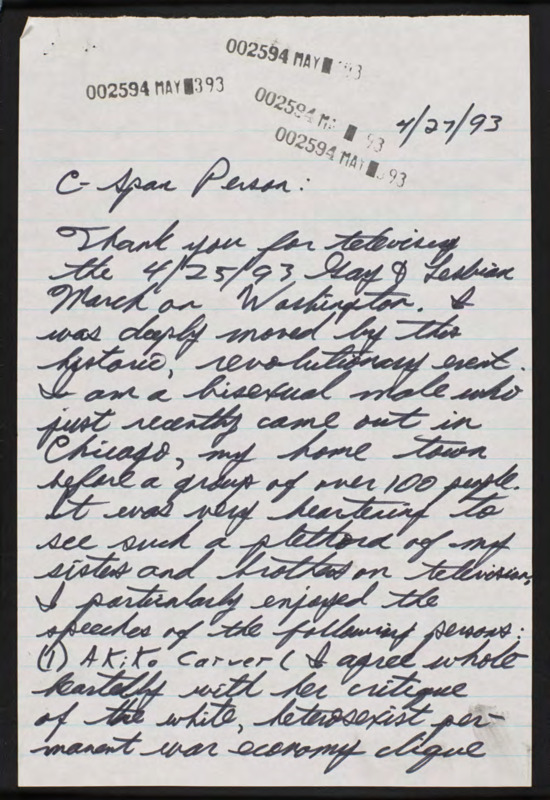 002594 MAY 93
002594 MAY 393
002594 MA 93
002594 MAY 93
4/27/93
C-Span Person:
Thank you for televising
the 4/25/93 Gay & Lesbian
March on Washington. I
was deeply moved by this
historic, revolutionary event.
I am a bisexual male who
just recently came out in
Chicago, my home town
before a group of over 100 people.
It was very heartening to
see such a plethora of my
sisters and brothers on television,
I particularly enjoyed the
speeches of the following persons:
(1) AKiKo Carver ( I agree whole
heartedly with her critique
of the white, heterosexist per-
manent war economy clique